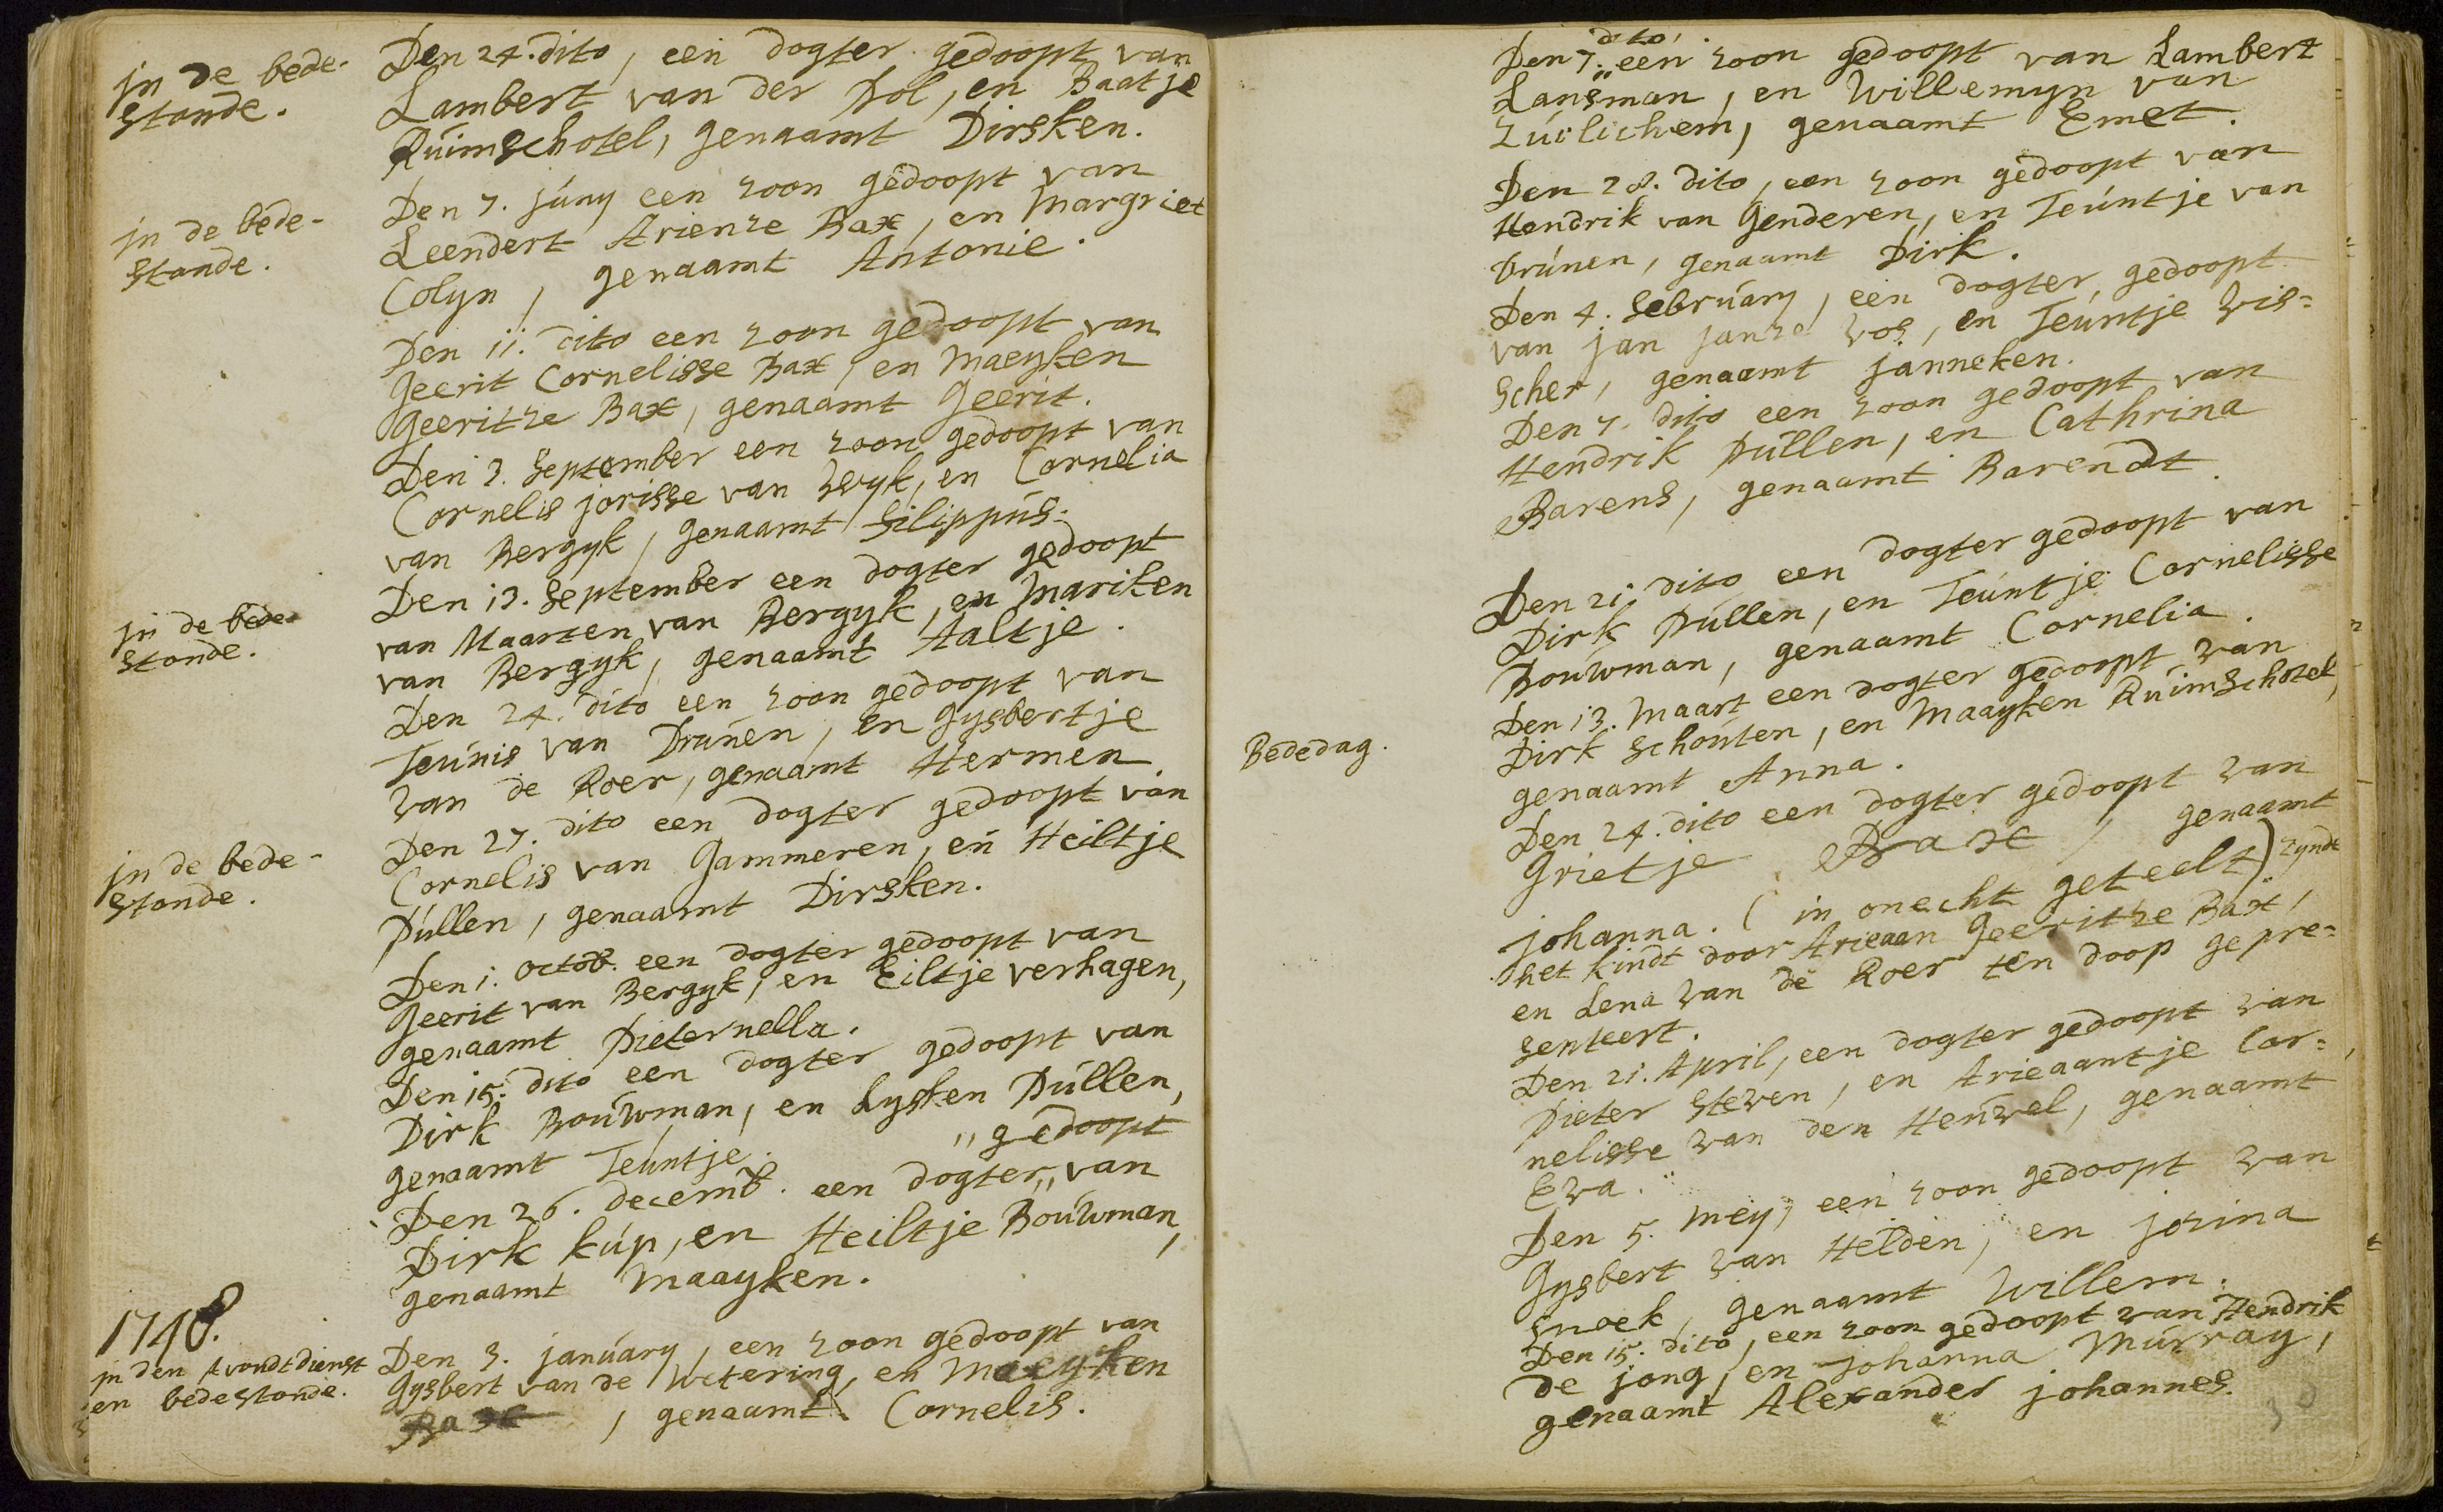 in de bede-
stonde.
Den 24. dito, een dogter gedoopt van
Lambert van der Pol, en Baatje
Ruimschotel, genaamt Dirsken.
in de bede-
stonde.
Den 7. juny een zoon gedoopt van
Leendert Arienze Bax, en Margriet
Colyn, genaamt Antonie.
Den 11. dito een zoon gedoopt van
Geerit Cornelisse Bax, en Maeyken
Geeritze Bax, genaamt Geerit.
Den 3. September een zoon gedoopt van
Cornelis jorisse van Wyk, en Cornelia
van Bergyk, genaamt Filippus.
Den 13. September een dogter gedoopt
van Maarten van Bergyk, en Mariken
van Bergyk, genaamt Aaltje.
in de bede-
stonde.
Den 24. dito een zoon gedoopt van
Teunis van Drunen, en Gysbertje
van de Roer, genaamt Hermen
in de bede-
stonde.
Den 27. dito een dogter gedoopt van
Cornelis van Gammeren, en Heiltje
Pullen, genaamt Dirsken.
Den 1. octob. een dogter gedoopt van
Geerit van Bergyk, en Eiltje verhagen,
genaamt Pieternella.
Den 15. dito een dogter gedoopt van
Dirk Bouwman, en Lysken Pullen,
genaamt Teuntje.
" gedoopt
Den 26. decemb. een dogter " van
Dirk kup, en Heiltje Bouwman,
genaamt Maayken.
1748.
in den Avondtdienst
en bedestonde.
Den 3. january, een zoon gedoopt van
Gysbert van de Wetering, en Maeyken
Bax, genaamt Cornelis.
dito,
Den 7. " een zoon gedoopt van Lambert
Lansman, en Willemyn van
Zuilichem, genaamt Emet.
Den 28. dito, een zoon gedoopt van
Hendrik van Genderen, en Teuntje van
Drunen, genaamt Dirk.
Den 4. February, een dogter gedoopt
van jan janze vos, en Teuntje vis=
scher, genaamt janneken.
Den 7. dito een zoon gedoopt van
Hendrik Pullen, en Cathrina
Barens, genaamt Barendt.
Den 21 dito een dogter gedoopt van
Dirk Pullen, en Teuntje Cornelisse
Bouwman, genaamt Cornelia.
Bededag.
Den 13. Maart een dogter gedoopt van
Dirk Schouten, en Maayken Ruimschotel,
genaamt Anna.
Den 24. dito een dogter gedoopt van
Grietje Bax, genaamt
johanna. (in onecht geteelt) zynde
het kindt door Arieaan Geeritze Bax,
en Lena van de Roer ten doop gepre=
senteert.
Den 21. April, een dogter gedoopt van
Pieter Steven, en Arieaantje Cor=
nelisse van den Heuvel, genaamt
Eva.
Den 5. mey, een zoon gedoopt van
Gysbert van Helden, en jozina
snoek, genaamt Willem.
Den 15. dito, een zoon gedoopt van Hendrik
de jong, en johanna Murray,
genaamt Alexander johannes.
30